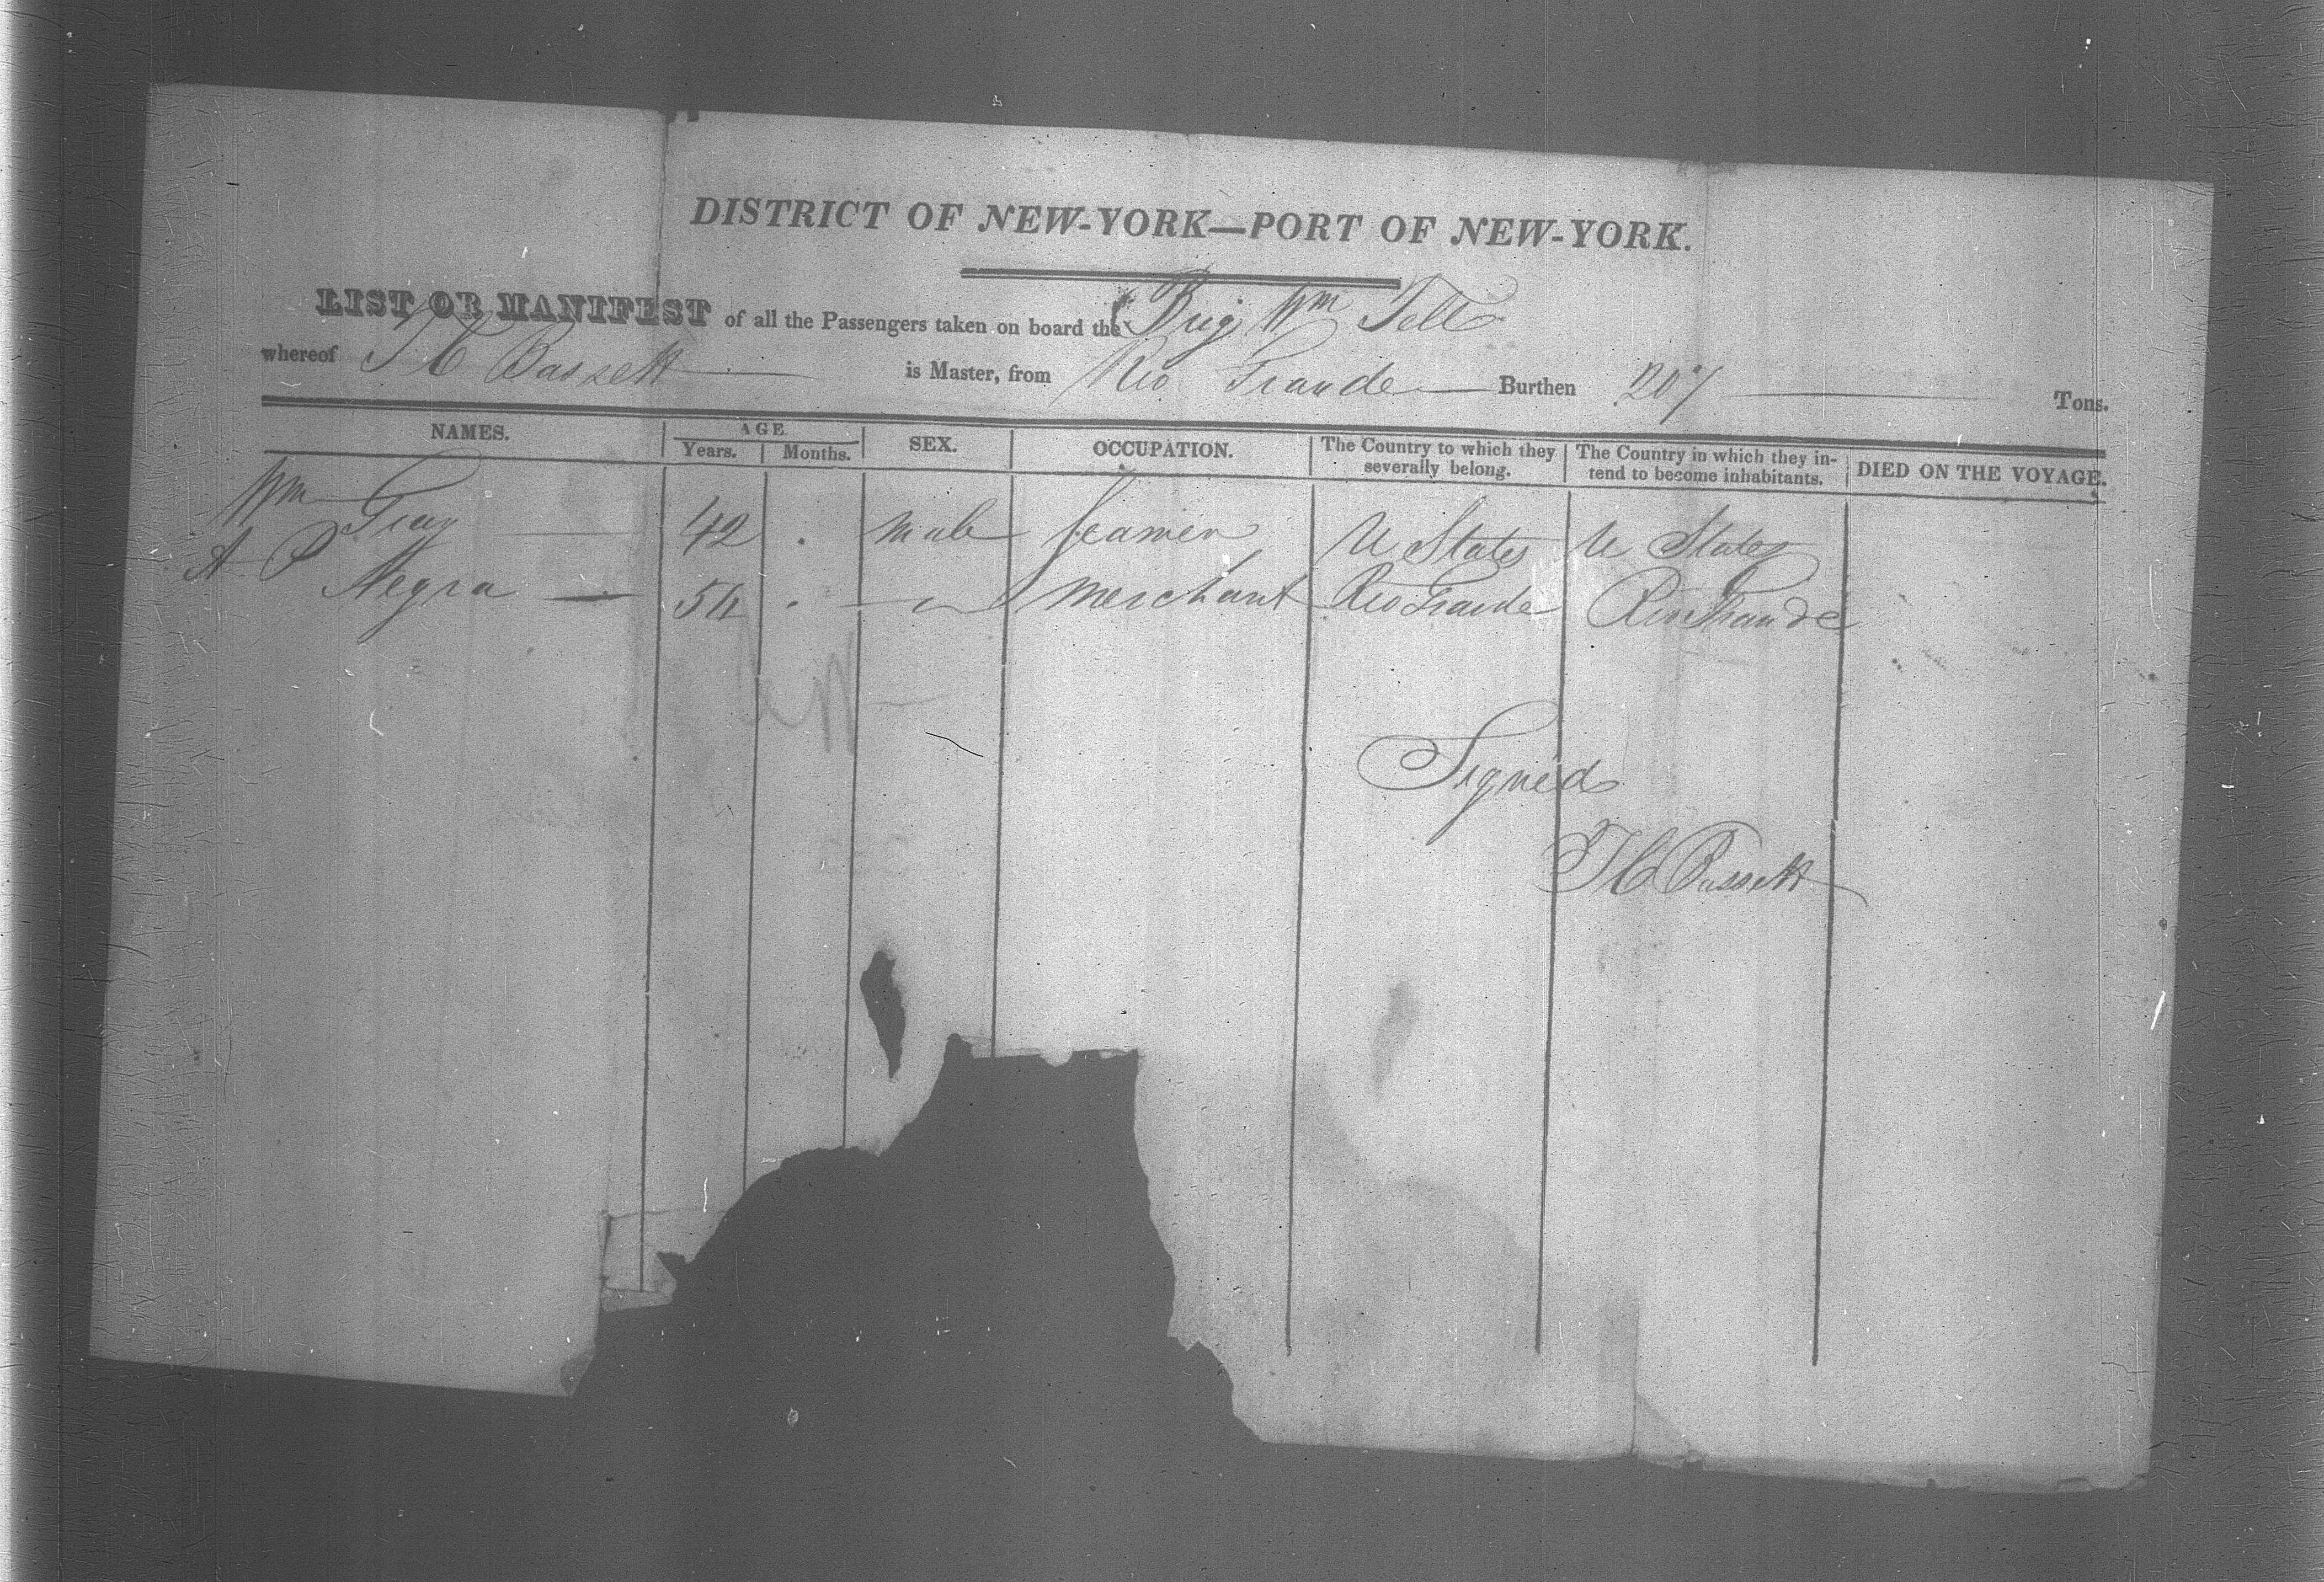 DISTRICT OF NEW-YORK—PORT OF NEW-YORK.
LIST OR MANIFEST of all the Passengers taken on board the Brig Wm Tell
whereof T C Bassett is Master, from Rio Grande Burthen 207 Tons.
NAMES. AGE. Years. Months. SEX. OCCUPATION. The Country to which they severally belong. The Country in which they intend to become inhabitants. DIED ON THE VOYAGE.
Wm Gray 42 . male Seamen U States U States
A P Negra 54 . " merchant Rio Grande Rio Grande
Signed
T C Bassett